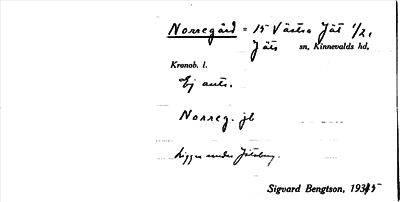 Norregård = 15 Västra Jät 1/2,
Jäts sn, Kinnevalds hd,
Kronob. l.
Ej ants.
Norreg. jb
Ligger under Jätsberg.
Sigvard Bengtson, 1935